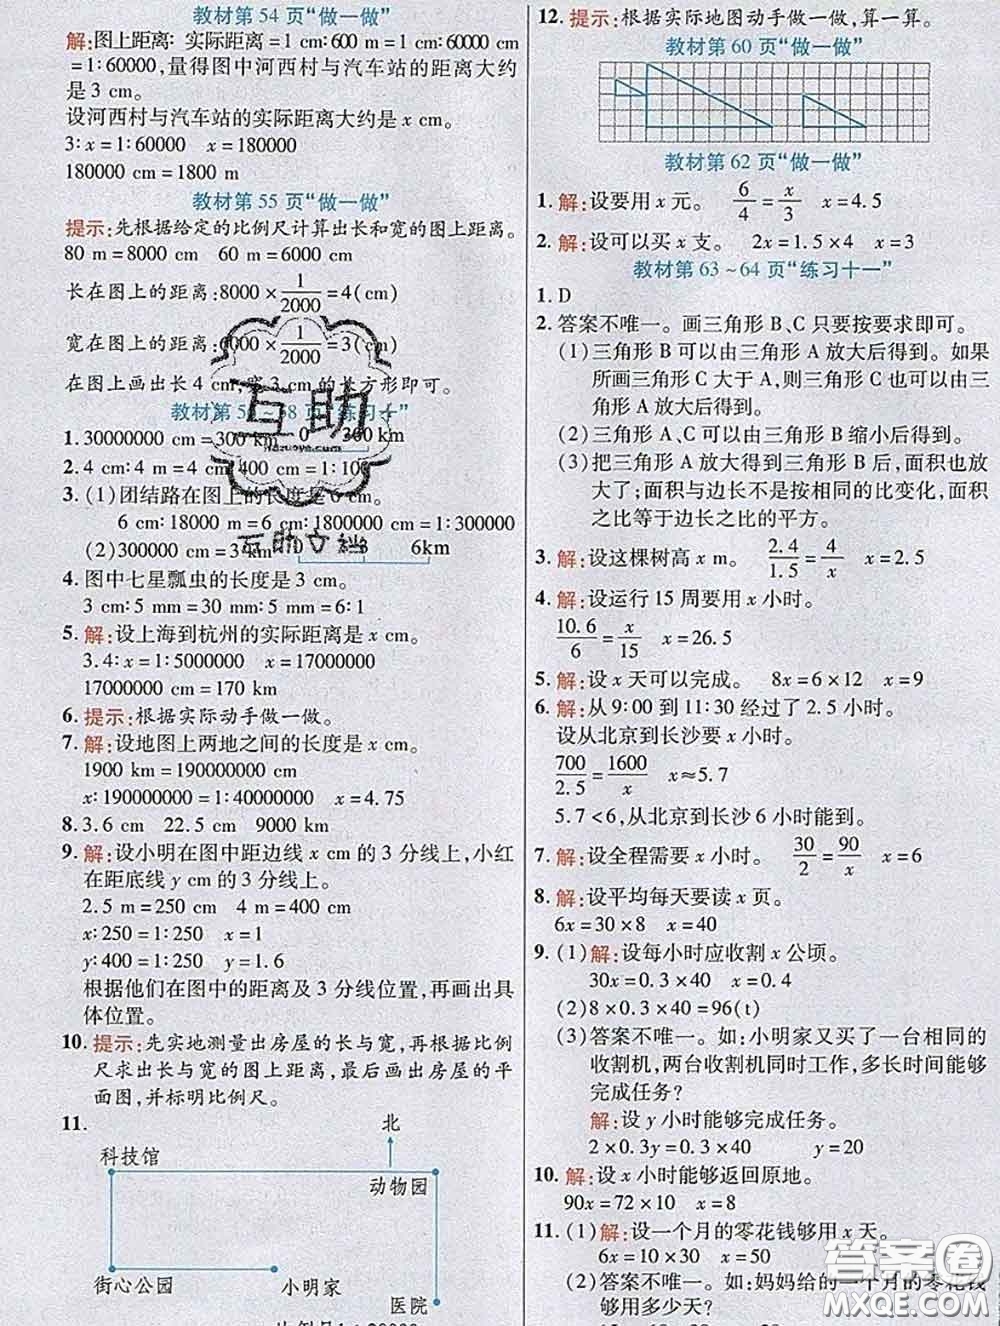 教材第 54 页“做一做”
解:图上距离: 实际距离=1 cm:600 m=1 cm:60000 cm
=1:60000,量得图中河西村与汽车站的距离大约
是 3 cm。
设河西村与汽车站的实际距离大约是 x cm。
3:x=1:60000 x=180000
180000 cm=1800 m
教材第 55 页“做一做”
提示:先根据给定的比例尺计算出长和宽的图上距离。
80 m=8000 cm 60 m=6000 cm
长在图上的距离:8000×1/2000=4(cm)
宽在图上的距离:6000×1/2000=3(cm)
在图上画出长 4 cm,宽 3 cm 的长方形即可。
教材第 5 ~58 页“练习十”
1.30000000 cm=300 km 0 300 km
2.4 cm:4 m=4 cm:400 cm=1:100
3.(1)团结路在图上的长度是 6 cm。
6 cm:18000 m=6 cm:1800000 cm=1:300000
(2)300000 cm=3 km 0 3 6km
4.图中七星瓢虫的长度是 3 cm。
3 cm:5 mm=30 mm:5 mm=6:1
5.解:设上海到杭州的实际距离是 x cm。
3.4:x=1:5000000 x=17000000
17000000 cm=170 km
6.提示:根据实际动手做一做。
7.解:设地图上两地之间的长度是 x cm。
1900 km=190000000 cm
x:190000000=1:40000000 x=4.75
8.3.6 cm 22.5 cm 9000 km
9.解:设小明在图中距边线 x cm 的 3 分线上,小红
在距底线 y cm 的 3 分线上。
2.5 m=250 cm 4 m=400 cm
x:250=1:250 x=1
y:400=1:250 y=1.6
根据他们在图中的距离及 3 分线位置,再画出具
体位置。
10.提示:先实地测量出房屋的长与宽,再根据比例
尺求出长与宽的图上距离,最后画出房屋的平
面图,并标明比例尺。
11.
北
科技馆
动物园
街心公园
小明家
医院
12.提示:根据实际地图动手做一做,算一算。
教材第 60 页“做一做”
教材第 62 页“做一做”
1.解:设要用 x 元。 6/4=x/3 x=4.5
2.解:设可以买 x 支。 2x=1.5×4 x=3
教材第 63~64 页“练习十一”
1.D
2.答案不唯一。画三角形 B、C 只要按要求即可。
(1)三角形 B 可以由三角形 A 放大后得到。如果
所画三角形 C 大于 A,则三角形 C 也可以由三角
形 A 放大后得到。
(2)三角形 A、C 可以由三角形 B 缩小后得到。
(3)把三角形 A 放大得到三角形 B 后,面积也放
大了;面积与边长不是按相同的比变化,面积
之比等于边长之比的平方。
3.解:设这棵树高 x m。 2.4/1.5=4/x x=2.5
4.解:设运行 15 周要用 x 小时。
10.6/6=x/15 x=26.5
5.解:设 x 天可以完成。 8x=6×12 x=9
6.解:从 9:00 到 11:30 经过了 2.5 小时。
设从北京到长沙要 x 小时。
700/2.5=1600/x x≈5.7
5.7<6,从北京到长沙 6 小时能到。
7.解:设全程需要 x 小时。 30/2=90/x x=6
8.解:设平均每天要读 x 页。
6x=30×8 x=40
9.(1)解:设每小时应收割 x 公顷。
30x=0.3×40 x=0.4
(2)8×0.3×40=96(t)
(3)答案不唯一。如:小明家又买了一台相同的
收割机,两台收割机同时工作,多长时间能够
完成任务?
解:设 y 小时能够完成任务。
2×0.3y=0.3×40 y=20
10.解:设 x 小时能够返回原地。
90x=72×10 x=8
11.(1)解:设一个月的零花钱够用 x 天。
6x=10×30 x=50
(2)答案不唯一。如:妈妈给的一个月的零花钱
够用多少天?
互助
互助文档
答案圈
MXQE.COM